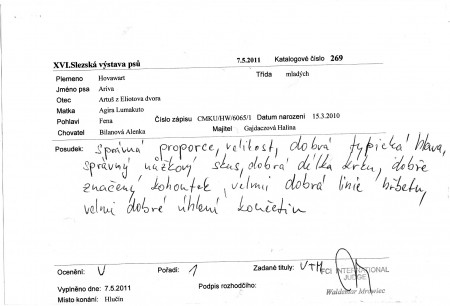 XVI.Slezská výstava psů 7.5.2011 Katalogové číslo 269
Plemeno Hovawart Třída mladých
Jméno psa Ariva
Otec Artuš z Eliotova dvora
Matka Agira Lumakuto
Pohlaví Fena Číslo zápisu CMKU/HW/6065/1 Datum narození 15.3.2010
Chovatel Bilanová Alenka Majitel Gajdaczová Halina
Posudek: správná proporce, velikost, dobrá typická hlava,
správný nůžkový skus, dobrá délka krku, dobře
značený kohoutek, velmi dobrá linie hřbetu,
velmi dobré úhlení končetin
Ocenění: V Pořadí: 1 Zadané tituly: VTM FCI INTERNATIONAL
JUDGE
Vyplněno dne: 7.5.2011 Podpis rozhodčího: Waldemar
Místo konání: Hlučín